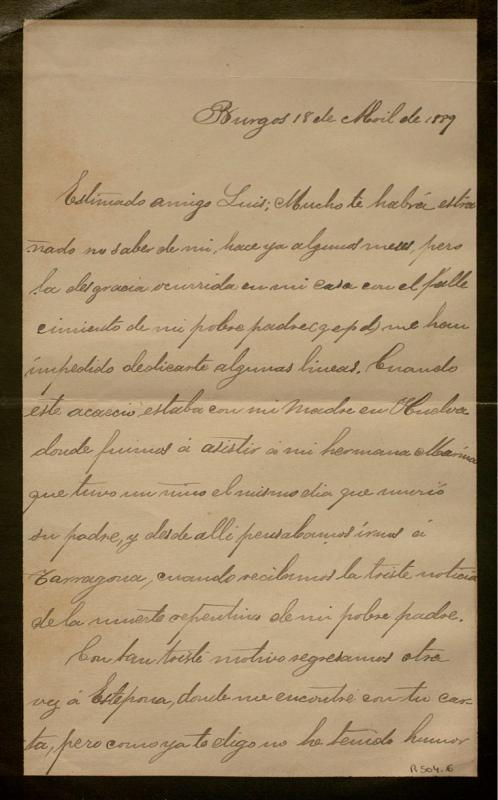 Burgos 18 de Abril de 1889
Estimado amigo Luis; Mucho te habrá estra
ñado no saber de mi, hace ya algunos meses, pero
la desgracia ocurrida en mi casa con el falle
cimiento de mi pobre padre (q e p d) me han
impedido dedicarte algunas lineas. Cuando
este acaeció estaba con mi Madre en Huelva
donde fuimos á asistir á mi hermana Marina
que tuvo un niño el mismo dia que murió
su padre, y desde alli pensabamos irnos á
Tarragona, cuando recibimos la triste noticia
de la muerte repentina de mi pobre padre.
Con tan triste motivo regresamos otra
vez á Estepona, donde me encontré con tu car-
ta, pero como ya te digo no he tenido humor
R 504.6